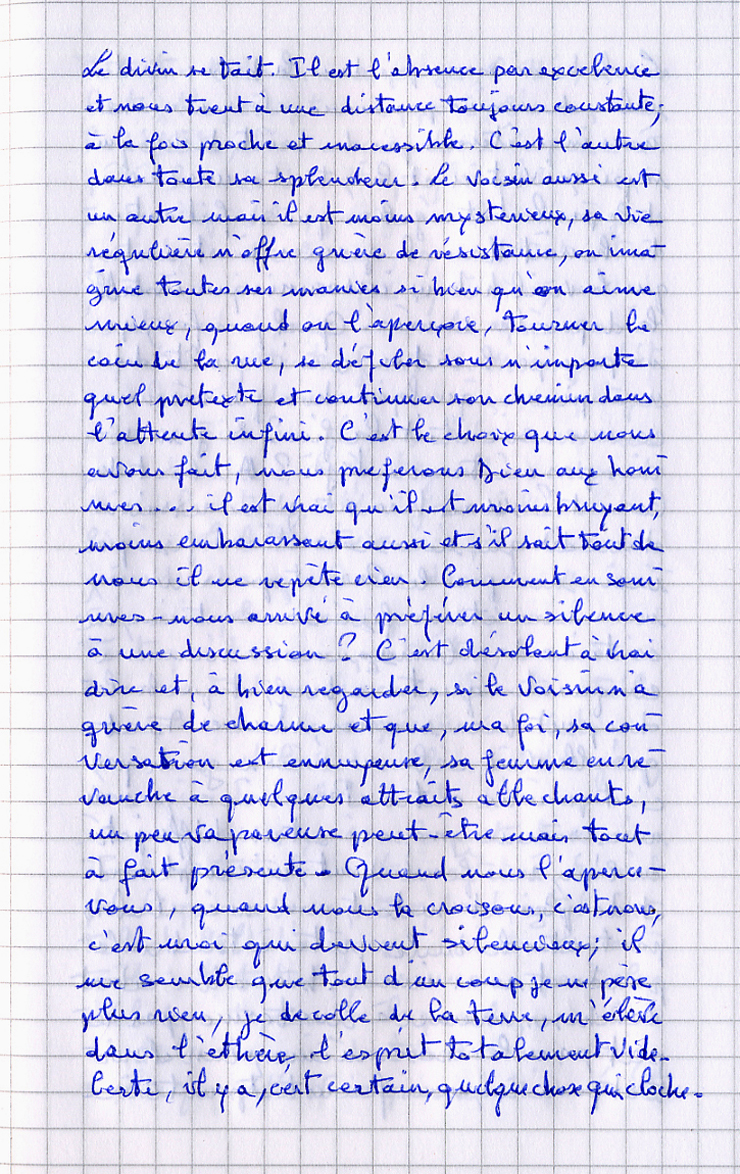 Le divin se tait. Il est l'absence par excelence
et nous tient à une distance toujours constante,
à la fois proche et inacessible. C'est l'autre
dans toute sa splendeur. Le voisin aussi est
un autre mais il est moins mysterieux, sa vie
régulière n'offre guère de résistance, on ima-
gine toutes ses manies si bien qu'on aime
mieux, quand on l'aperçoie, tourner le
coin de la rue, se défiler sous n'importe
quel pretexte et continuer son chemin dans
l'attente infini. C'est le choix que nous
avons fait, nous preferons Dieu aux hom-
mes... il est vrai qu'il est moins bruyant,
moins embarassant aussi et s'il sait tout de
nous il ne repète rien. Comment en som-
mes-nous arrivé à préférer un silence
à une discussion ? C'est désolant à vrai
dire et, à bien regarder, si le voisin n'a
guère de charme et que, ma foi, sa con-
versation est ennuyeuse, sa femme en re-
vanche à quelques attraits allechants,
un peu vapoveuse peut-être mais tout
à fait présente. Quand nous l'aperce-
vons, quand nous la croisons, c'est nous,
c'est moi qui devient silencieux; il
me semble que tout d'un coup je ne pèse
plus rien, je decolle de la terre, m'élève
dans l'ethère, l'esprit totalement vide.
Certe, il y a, c'est certain, quelque chose qui cloche.